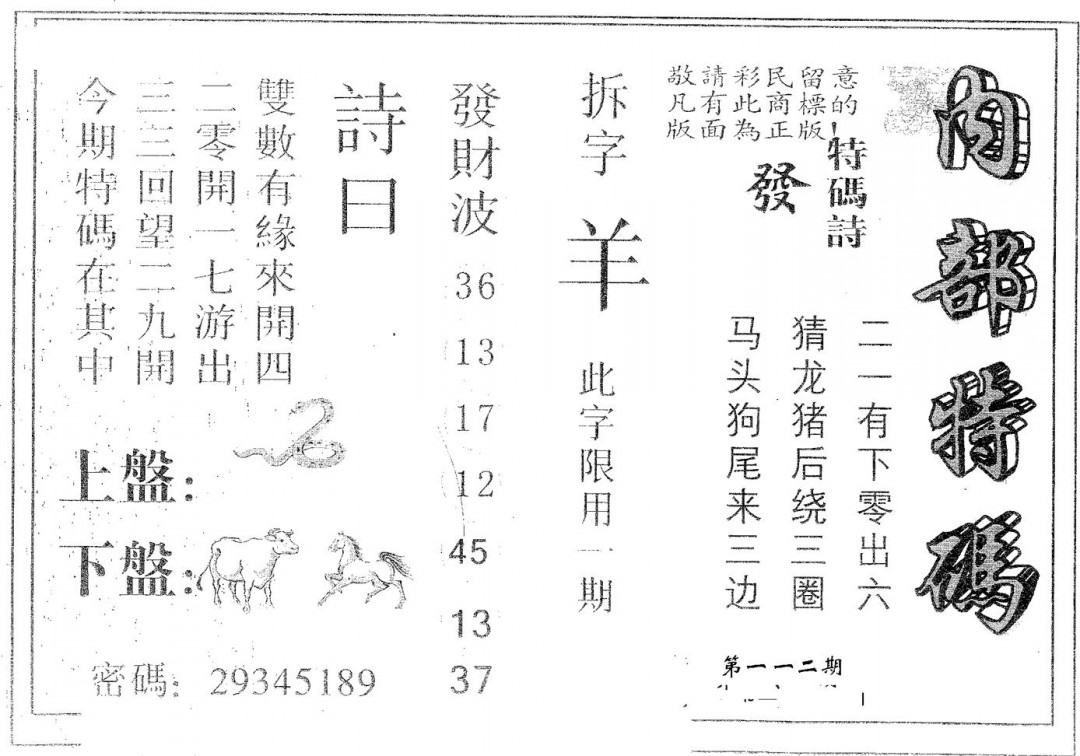 内部特碼
敬請彩民留意
凡有此商標的
版面為正版
特碼詩
發
二一有下零出六
猜龙猪后绕三圈
马头狗尾来三边
第一一二期
拆字
羊
此字限用一期
發財波
36
13
17
12
45
13
37
詩曰
雙數有緣來開四
二零開一七游出
三三回望二九開
今期特碼在其中
上盤:
下盤:
密碼: 29345189